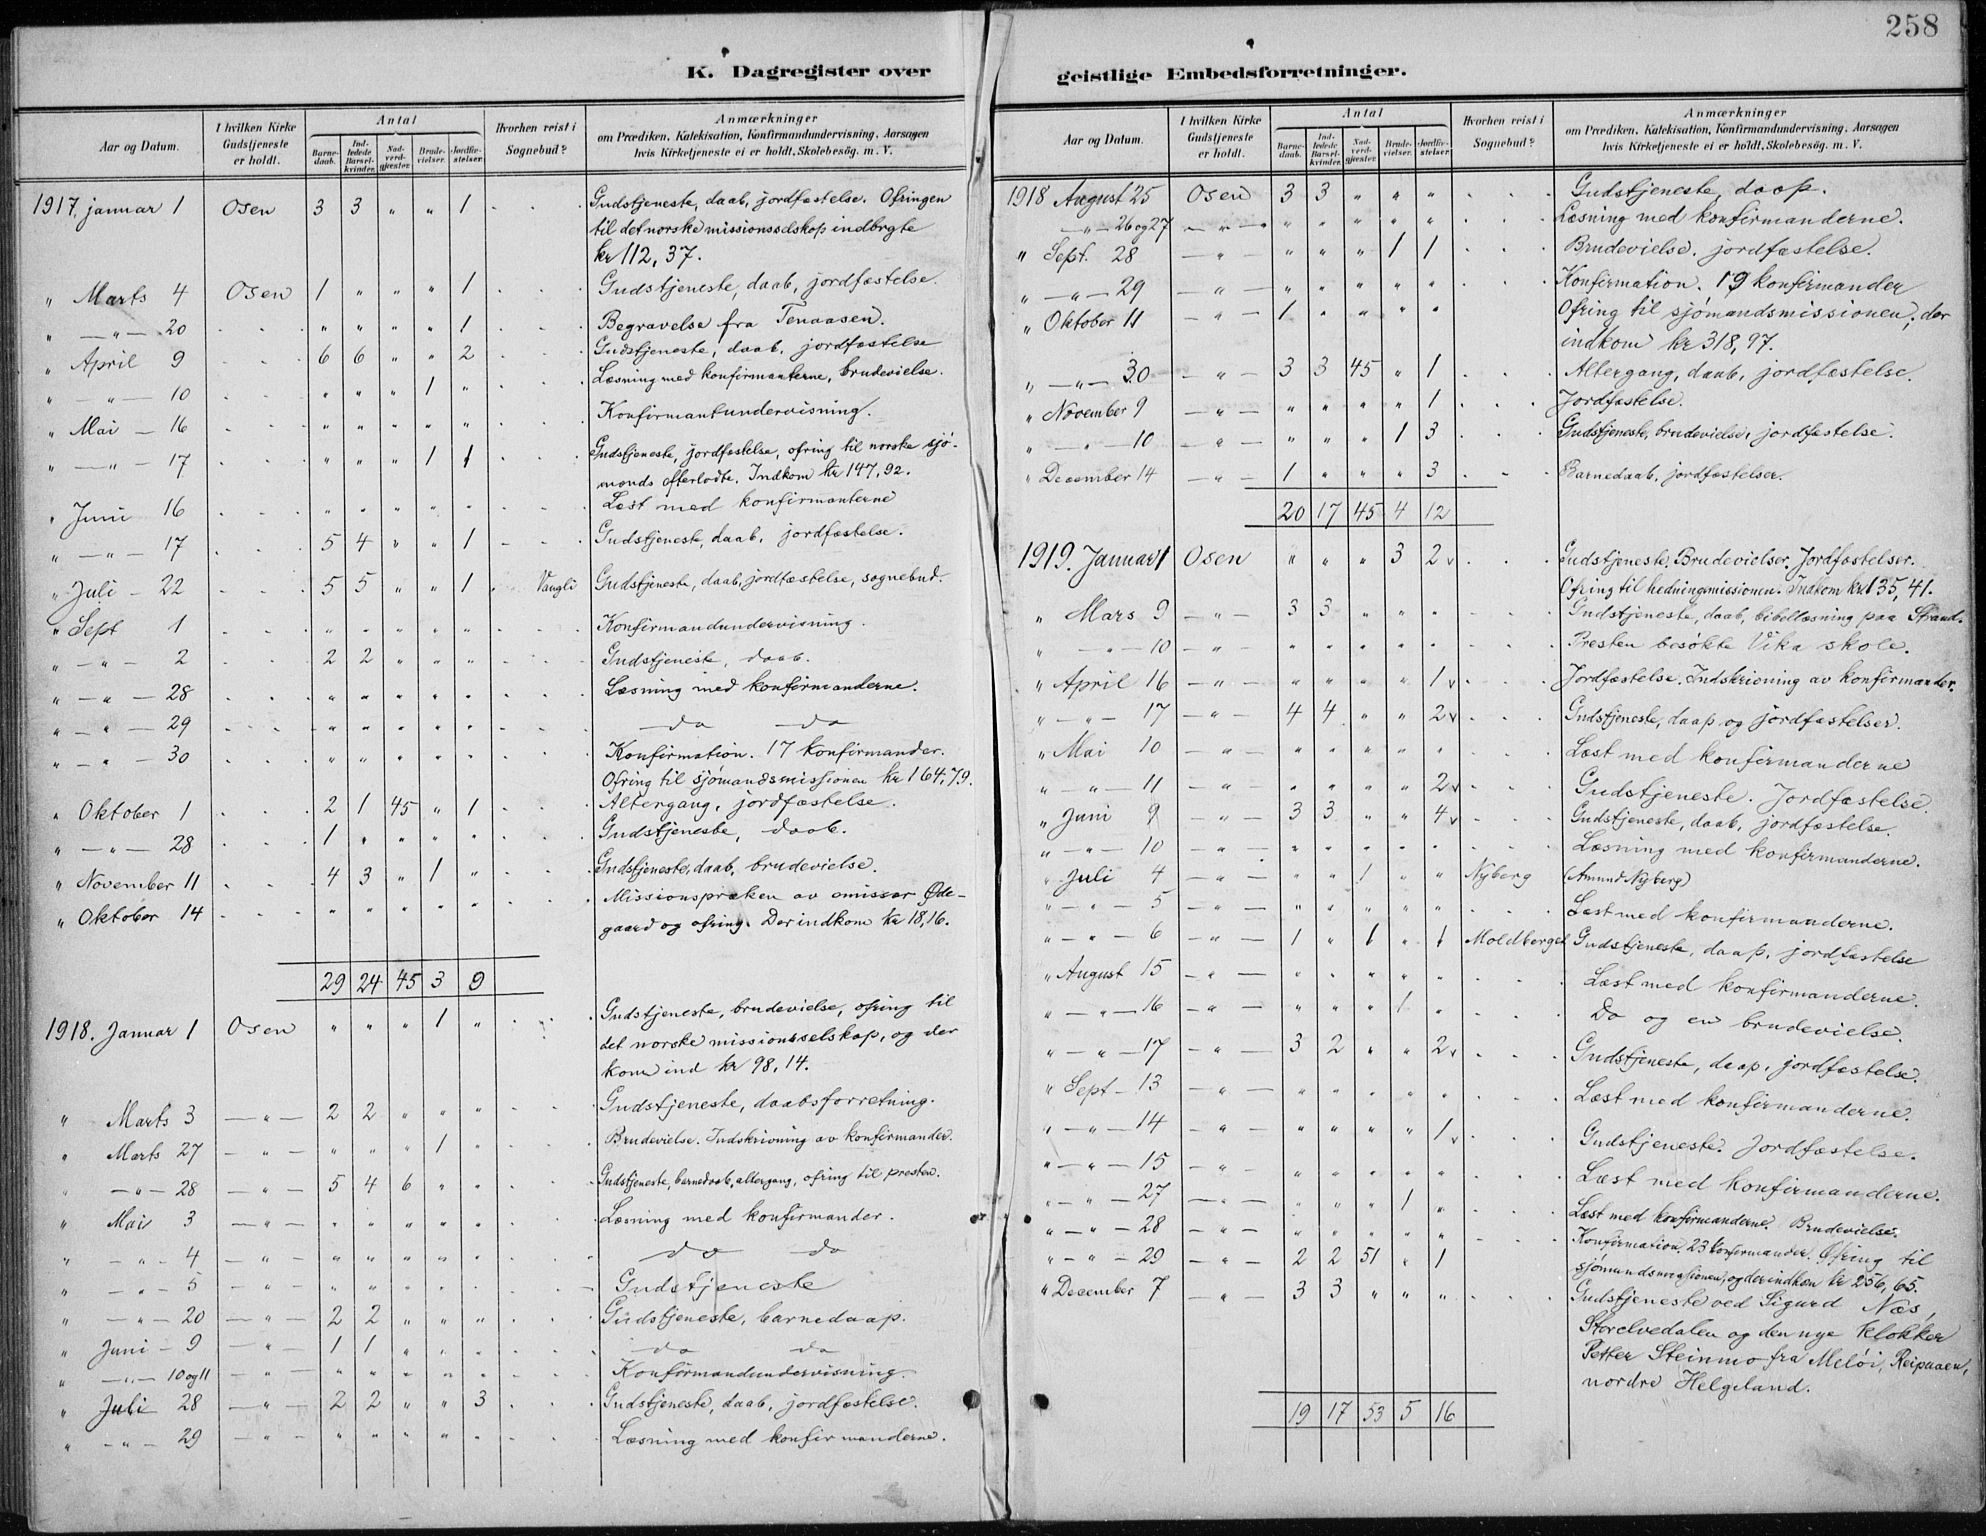 258
K. Dagregister over
Aar og Datum. I hvilken Kirke Gudstjeneste er holdt. Antal Barnedaab. Indledede Barselkvinder. Nadverdgjester. Brudevielser. Jordfæstelser. Hvorhen reist i Sognebud? Anmærkninger om Prædiken, Katekisation, Konfirmandundervisning, Aarsagen hvis Kirketjeneste ei er holdt, Skolebesøg. m. V.
1917. januar 1 Osen 3 3 „ „ 1 . . . Gudstjeneste, daab, jordfæstelse. Ofringen
til det norske missionsselskap indbrgte
kr 112,37.
„ Marts 4 Osen 1 „ „ „ 1 . . . Gudstjeneste, daab, jordfæstelse.
„ —„— 20 . . . „ „ „ „ 1 . . . Begravelse fra Tenaasen.
„ April 9 . . . 6 6 „ „ 2 . . . Gudstjeneste, daab, jordfæstelse
„ —„— 10 . . . „ „ „ 1 „ . . . Læsning med konfirmanterne, brudevielse.
„ Mai — 16 . . . „ „ „ „ „ . . . Konfirmantundervisning.
„ —„— 17 . . . „ „ „ 1 1 . . . Gudstjeneste, jordfæstelse, ofring til norske sjø-
mænds efterladte. Indkom kr 147,92.
„ Juni 16 . . . „ „ „ „ „ . . . Læst med konfirmanterne
„ —„— 17 . . . 5 4 „ „ 1 . . . Gudstjeneste, daab, jordfæstelse.
„ Juli — 22 . . . 5 5 „ „ 1 . Vangli Gudstjeneste, daab, jordfæstelse, sognebud.
„ Sept 1 . . . „ „ „ „ „ . . . Konfirmandundervisning.
„ —„— 2 . . . 2 2 „ „ „ . . . Gudstjeneste, daab.
„ —„— 28 . . . „ „ „ „ „ . . . Læsning med konfirmanderne.
„ —„— 29 . . . „ „ „ „ „ . . . — do — do
„ —„— 30 . . . „ „ „ „ „ . . . Konfirmation. 17 konfirmander.
Ofring til sjømandsmissionen kr 164,79.
„ Oktober 1 . . . 2 1 45 „ 1 . . . Altergang, jordfæstelse.
„ —„— 28 . . . 1 „ „ „ „ . . . Gudstjeneste, daab.
„ November 11 . . . 4 3 „ 1 „ . . . Gudstjeneste, daab, brudevielse.
„ Oktober 14 . . . „ „ „ „ „ . . . Missionspræken av emissær Øde-
gaard og ofring. Der indkom kr 18,16.
29 24 45 3 9
1918. Januar 1 Osen „ „ „ 1 „ . . . Gudstjeneste, brudevielse, ofring til
det norske missionsselskap, og der
kom ind kr 98,14.
„ Marts 3 —„— 2 2 „ „ „ . . . Gudstjeneste, daabsforretning.
„ Marts 27 —„— „ „ „ 1 „ . . . Brudevielse. Indskrivning av konfirmander.
„ —„— 28 —„— 5 4 6 „ „ . . . Gudstjeneste, barnedaab, altergang, ofring til presten.
„ Mai 3 —„— „ „ „ „ „ . . . Læsning med konfirmander.
„ —„— 4 —„— „ „ „ „ „ . . . do do
„ —„— 5 —„— „ „ „ „ „ . . . Gudstjeneste
„ —„— 20 —„— 2 2 „ „ „ . . . Gudstjeneste, barnedaap.
„ Juni — 9 —„— 1 1 „ „ „ . . . do do
„ —„— 10 og 11 —„— „ „ „ „ „ . . . Konfirmandundervisning.
„ Juli 28 —„— 2 2 „ „ 3 . . . Gudstjeneste, daab, jordfæstelse.
„ —„— 29 „ „ „ „ „ . . . Læsning med konfirmanderne.
geistlige Embedsforretninger.
Aar og Datum. I hvilken Kirke Gudstjeneste er holdt. Antal Barnedaab. Indledede Barselkvinder. Nadverdgjester. Brudevielser. Jordfæstelser. Hvorhen reist i Sognebud? Anmærkninger om Prædiken, Katekisation, Konfirmandundervisning, Aarsagen hvis Kirketjeneste ei er holdt, Skolebesøg. m. V.
1918 August 25 Osen 3 3 „ „ „ . . . Gudstjeneste, daap.
—„— 26 og 27 —„— „ „ „ „ „ . . . Læsning med konfirmanderne.
„ Sept. 28 —„— „ „ „ 1 1 . . . Brudevielse, jordfæstelse.
„ —„— 29 —„— „ „ „ „ „ . . . Konfirmation. 19 konfirmander
„ Oktober 11 —„— 1 „ „ „ „ Ofring til sjømandsmissionen, der
indkom kr 318,97.
„ —„— 30 —„— 3 3 45 „ 1 . . . Altergang, daab, jordfæstelse.
„ November 9 —„— „ „ „ „ 1 . . . Jordfæstelse.
„ 10 —„— „ „ „ 1 3 . . . Gudstjeneste, brudevielse, jordfæstelse.
„ December 14 —„— 1 „ „ „ 3 . . Barnedaab, jordfæstelser.
20 17 45 4 12
1919. Januar 1 Osen „ „ „ 3 2 v . . . Gudstjeneste. Brudevielser. Jordfæstelser.
Ofring til hedningemissionen. Indkom kr 135,41.
„ Mars 9 —„— 3 3 „ „ „ . . . Gudstjeneste, daab, bibellæsning paa Strand.
„ —„— 10 —„— „ „ „ „ „ . . . Presten besøkte Vika skole.
„ April 16 —„— „ „ „ „ 1 v . . . Jordfæstelse. Indskrivning av konfirmander.
„ —„— 17 —„— 4 4 „ „ 2 v . . . Gudstjeneste, daap og jordfæstelser.
„ Mai 10 —„— „ „ „ „ „ . . . Læst med konfirmanderne
„ „ 11 —„— „ „ „ „ 2 v . . . Gudstjeneste. Jordfæstelse.
„ Juni 9 —„— 3 3 „ „ 4 v . . . Gudstjeneste, daab, jordfæstelse.
„ —„— 10 —„— „ „ „ „ „ . . . Læsning med konfirmanderne.
„ Juli 4 —„— „ „ 1 „ „ Nyberg (Amund Nyberg)
„ —„— 5 —„— „ „ „ „ „ . . . Læst med konfirmanderne.
„ —„— 6 —„— 1 „ 1 „ 1 Moldberget Gudstjeneste, daap, jordfæstelse
„ August 15 —„— „ „ „ „ „ . . . Læst med konfirmanderne.
„ —„— 16 —„— „ „ „ 1 „ . . . Do og en brudevielse.
„ —„— 17 —„— 3 2 „ „ 2 v . . . Gudstjeneste, daap, jordfæstelse.
„ Sept — 13 —„— „ „ „ „ „ . . . Læst med konfirmanderne.
„ —„— 14 —„— „ „ „ „ 1 v . . . Gudstjeneste. Jordfæstelse.
„ —„— 15 —„— „ „ „ „ „ . . . Læst med konfirmanderne.
„ —„— 27 —„— „ „ „ 1 „ . . . Læst med konfirmanderne. Brudevielse.
„ —„— 28 —„— „ „ „ „ „ . . .
„ —„— 29 —„— 2 2 51 „ 1 Konfirmation, 23 konfirmander. Ofring til
sjømandsmissionen, og der indkom kr 256,65.
„ December 7 —„— 3 3 „ „ „ . . . Gudstjeneste ved Sigurd Næs,
Storelvedalen og den nye klokker
Petter Steinmo fra Meløi, Reipaaen,
nordre Helgeland.
19 17 53 5 16